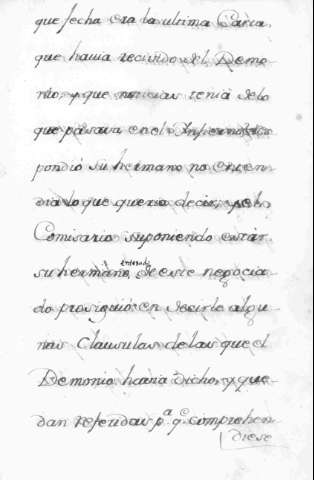 que fecha era la ultima Carta,
que havia recivido del Demo
nio, y que noticias tenia de lo
que pasava en el Infierno: Res
pondió su hermano no enten
dia lo que queria decir, y el
Comisario suponiendo estar
su hermano, enterado de este negocia
do prosiguió en decirle algu
nas Clausulas de las que el
Demonio havia dicho, y que
dan referidas pa. qe. comprehen
diese